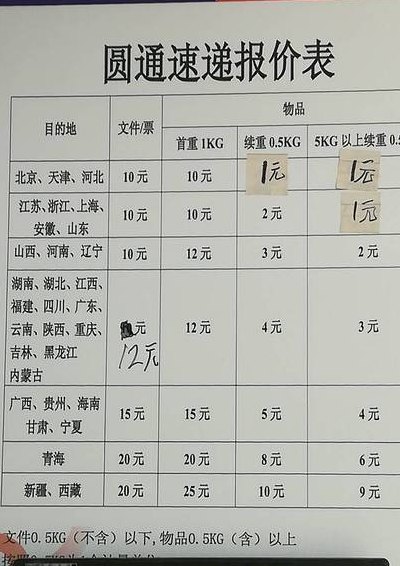 圆通速递报价表
目的地 文件/票 物品
首重 1KG 续重 0.5KG 5KG 以上续重 0.5
北京、天津、河北 10 元 10 元 1元 1元
江苏、浙江、上海、
安徽、山东 10 元 10 元 2 元 1元
山西、河南、辽宁 10 元 12 元 3 元 2 元
湖南、湖北、江西、
福建、四川、广东、
云南、陕西、重庆、
吉林、黑龙江
内蒙古 元 12元 12 元 4 元 3 元
广西、贵州、海南
甘肃、宁夏 15 元 15 元 5 元 4 元
青海 20 元 20 元 8 元 6 元
新疆、西藏 20 元 25 元 10 元 9 元
文件0.5KG（不含）以下,物品0.5KG（含）以上